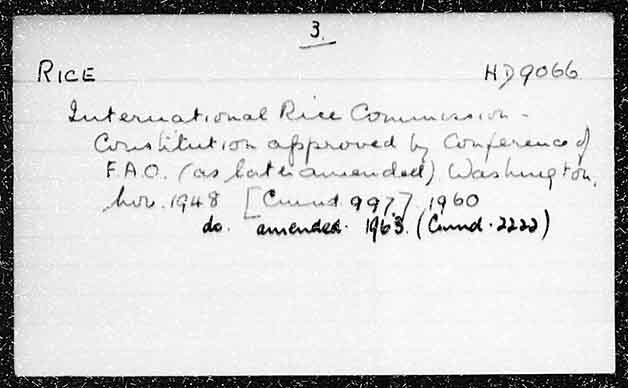 3.
RICE HD9066
International Rice Commission -
Constitution approved by Conference of
F.A.O. (as later amended) Washington,
Nov. 1948 [Cmnd. 997] 1960
do. amended. 1963. (Cmnd. 2222)